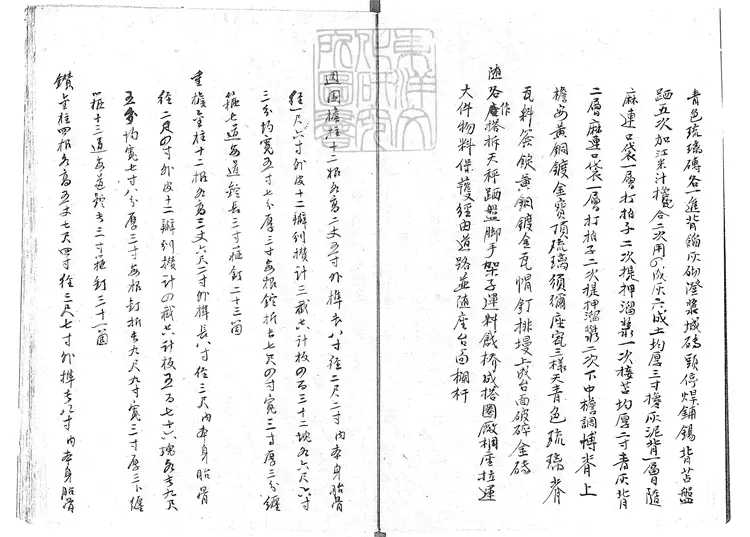 青色琉璃磚各一進背餡灰砌澄漿城磚頭停焊鋪錫背苫盤
跴五次加江米汁攙合二次用四成灰六成土均厚三寸攙灰泥背一層隨
麻連口袋一層打拍子二次提押溜漿一次接苫均厚二寸青灰背
二層麻連口袋一層打拍子二次提押溜漿二次下中檐調博脊上
檐安黃銅鍍金寶頂琉璃須彌座瓷三樣天青色琉璃脊
瓦料簽錠黃銅鍍金瓦帽釘排墁上成台面破碎金磚
隨各作搭拆天秤跴盤脚手架子運料戧橋成搭圈廠棚座拉運
大件物料保護經由道路並隨座台面欄杆
週圍檐柱十二根各高二丈五寸外榫長八寸徑二尺二寸內本身胎骨
徑一尺六寸外皮十二瓣別攢計三截共計板四百三十二塊各六尺八寸
三分均寬五寸七分厚三寸每根錠拆長七尺四寸寬三寸厚三分纏
箍七道每道鎗長三寸箍釘二十三箇
重檐金柱十二根各高三丈六尺二寸外榫長八寸徑三尺內本身胎骨
徑二尺四寸外皮十二瓣別攢計四截共計板五百七十六塊各長九尺
五分均寬七寸八分厚三寸每根釘拆長九尺九寸寬三寸厚三分纏
箍十三道每道鎗長三寸箍釘三十一箇
鑽金柱四根各高五丈七尺四寸徑三尺七寸外榫長八寸內本身胎骨